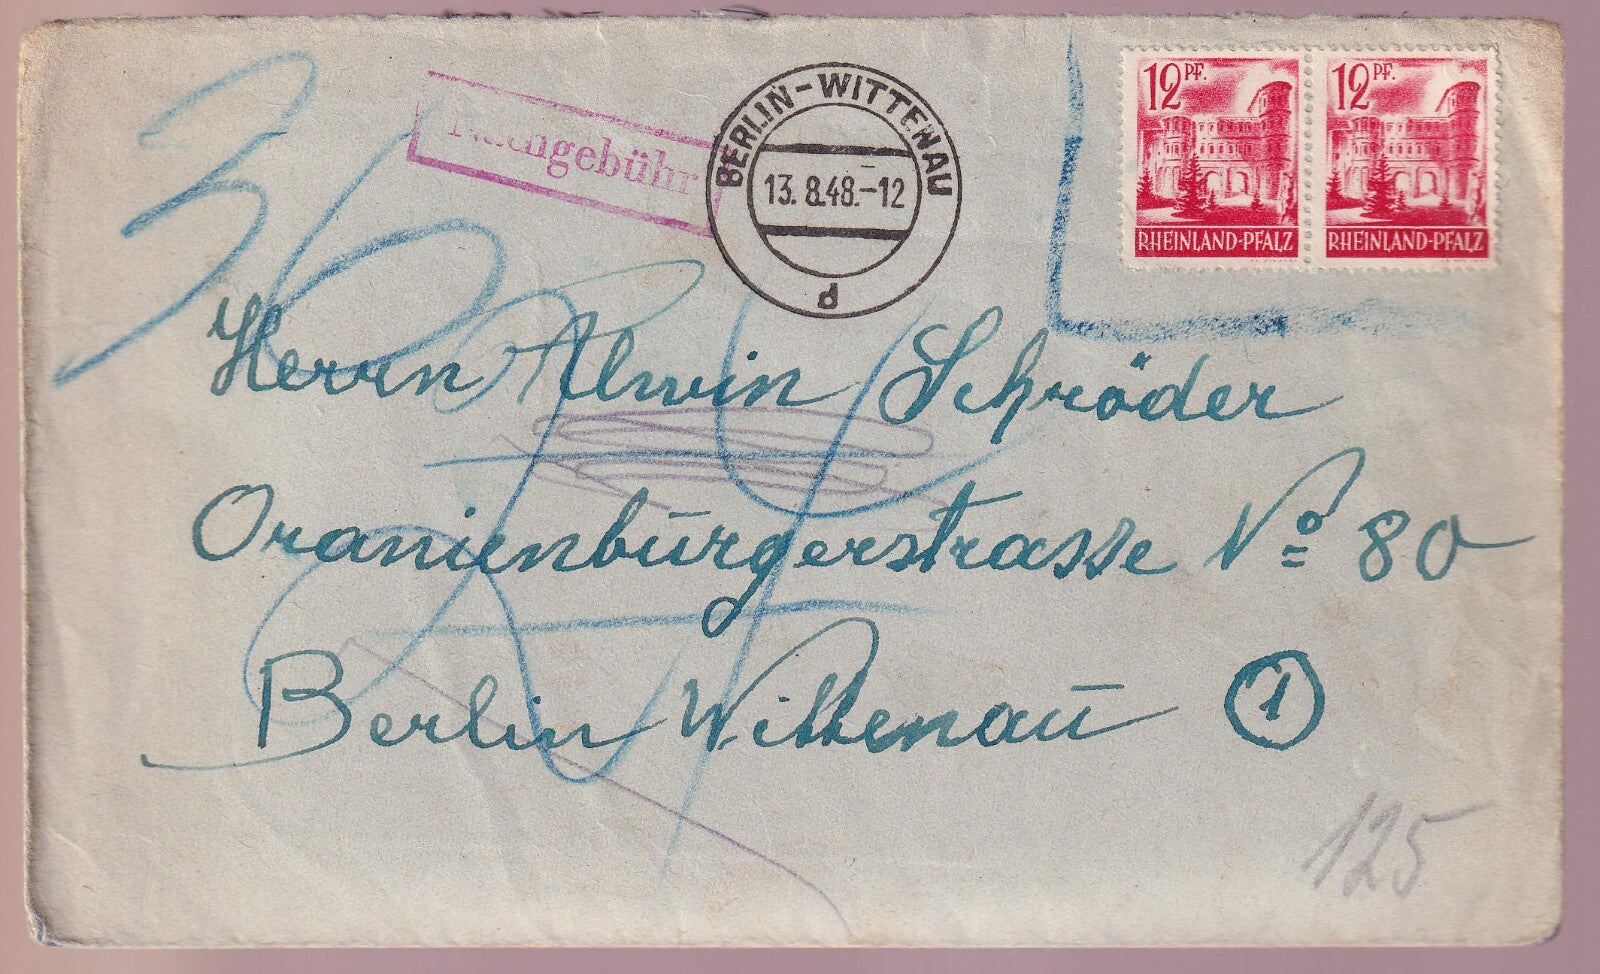 36
Nachgebühr
BERLIN-WITTENAU
13.8.48.-12
d
12 PF.
RHEINLAND-PFALZ
12 PF.
RHEINLAND-PFALZ
Herrn Alwin Schröder
Oranienbūrgerstrasse No 80
Berlin Wittenaū 1
125